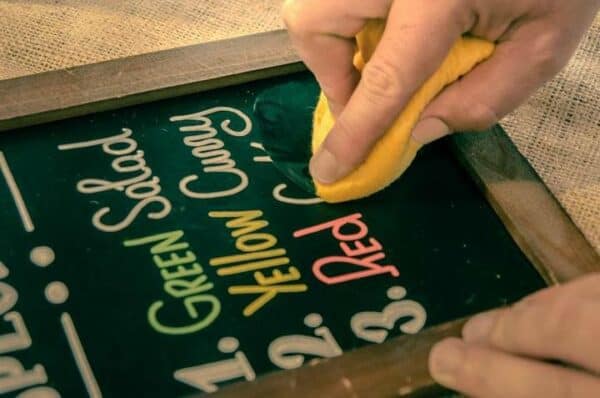 1. GREEN Salad
2. YELLOW Curry
3. RED C